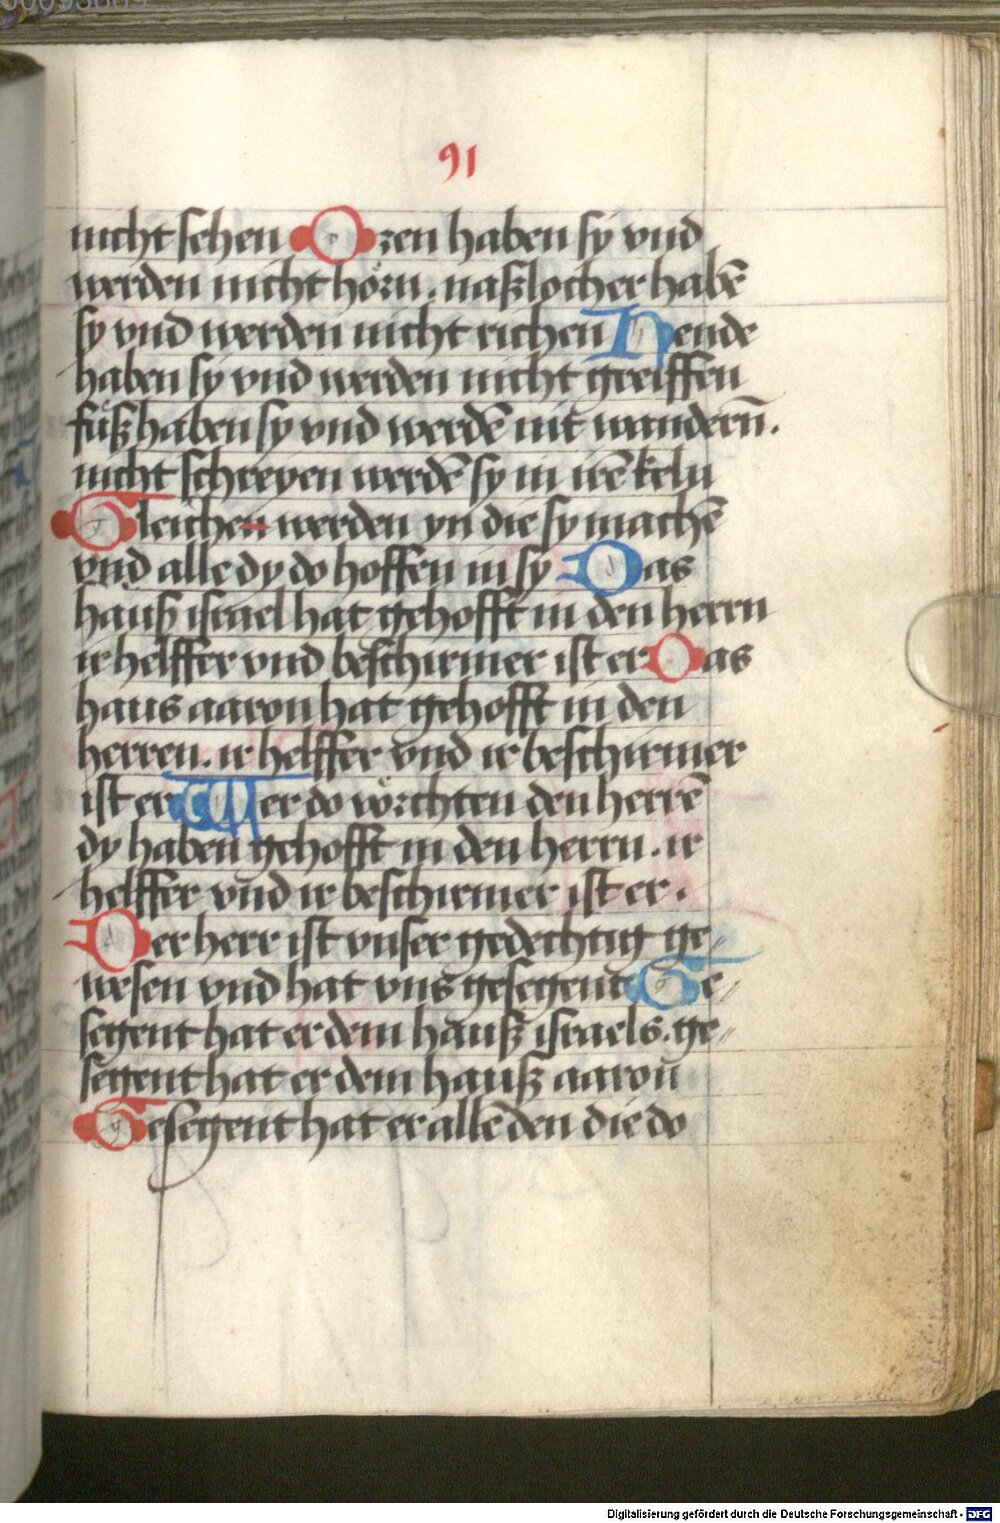 91
nicht sehen Oren haben sy vnd
werden nicht hörn. naßlocher habē
sy vnd werden nicht richen Hende
haben sy vnd werden nicht greiffen
füß haben sy vnd werdē nit wandern̄.
nicht schreyen werdē sy in irē keln
Gleichen werden yn die sy machē
vnd alle dy do hoffen in sy Das
hauß israel hat gehofft in den herrn
ir helffer vnd beschirmer ist er Das
haus aaron hat gehofft in den
herren. ir helffer vnd ir beschirmer
ist er Wer do vörchten den herrē
dy haben gehofft in den herrn. ir
helffer vnd ir beschirmer ist er.
Der herr ist vnser gedechtig ge„
wesen vnd hat vns gesegent Ge„
segent hat er dem hauß israels. ge„
segent hat er dem hauß aaron̄
Gesegent hat er allē den die do
Digitalisierung gefördert durch die Deutsche Forschungsgemeinschaft - DFG